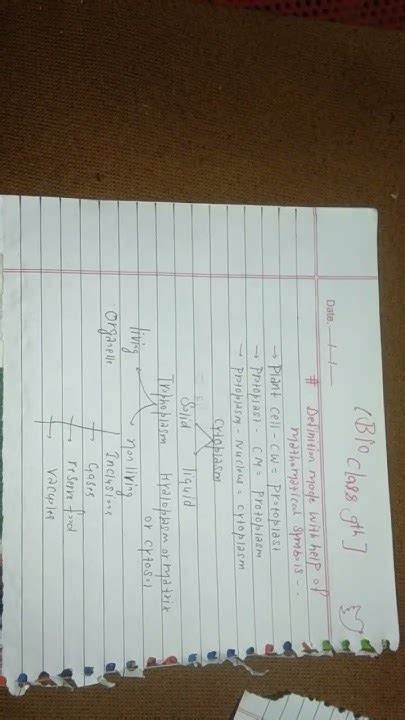 [Bio class 9th]
Date. __/__/__
# Definition made with help of
mathematical symbols -.
→ Plant cell - CW = protoplast
→ protoplast - CM = protoplasm
→ protoplasm - Nucleus = cytoplasm
cytoplasm
Solid liquid
Trophoplasm Hyaloplasm or matrix
or cytosol
living nonliving
Organelle Inclusions
→ Gases
→ reserve food
→ Vacuole